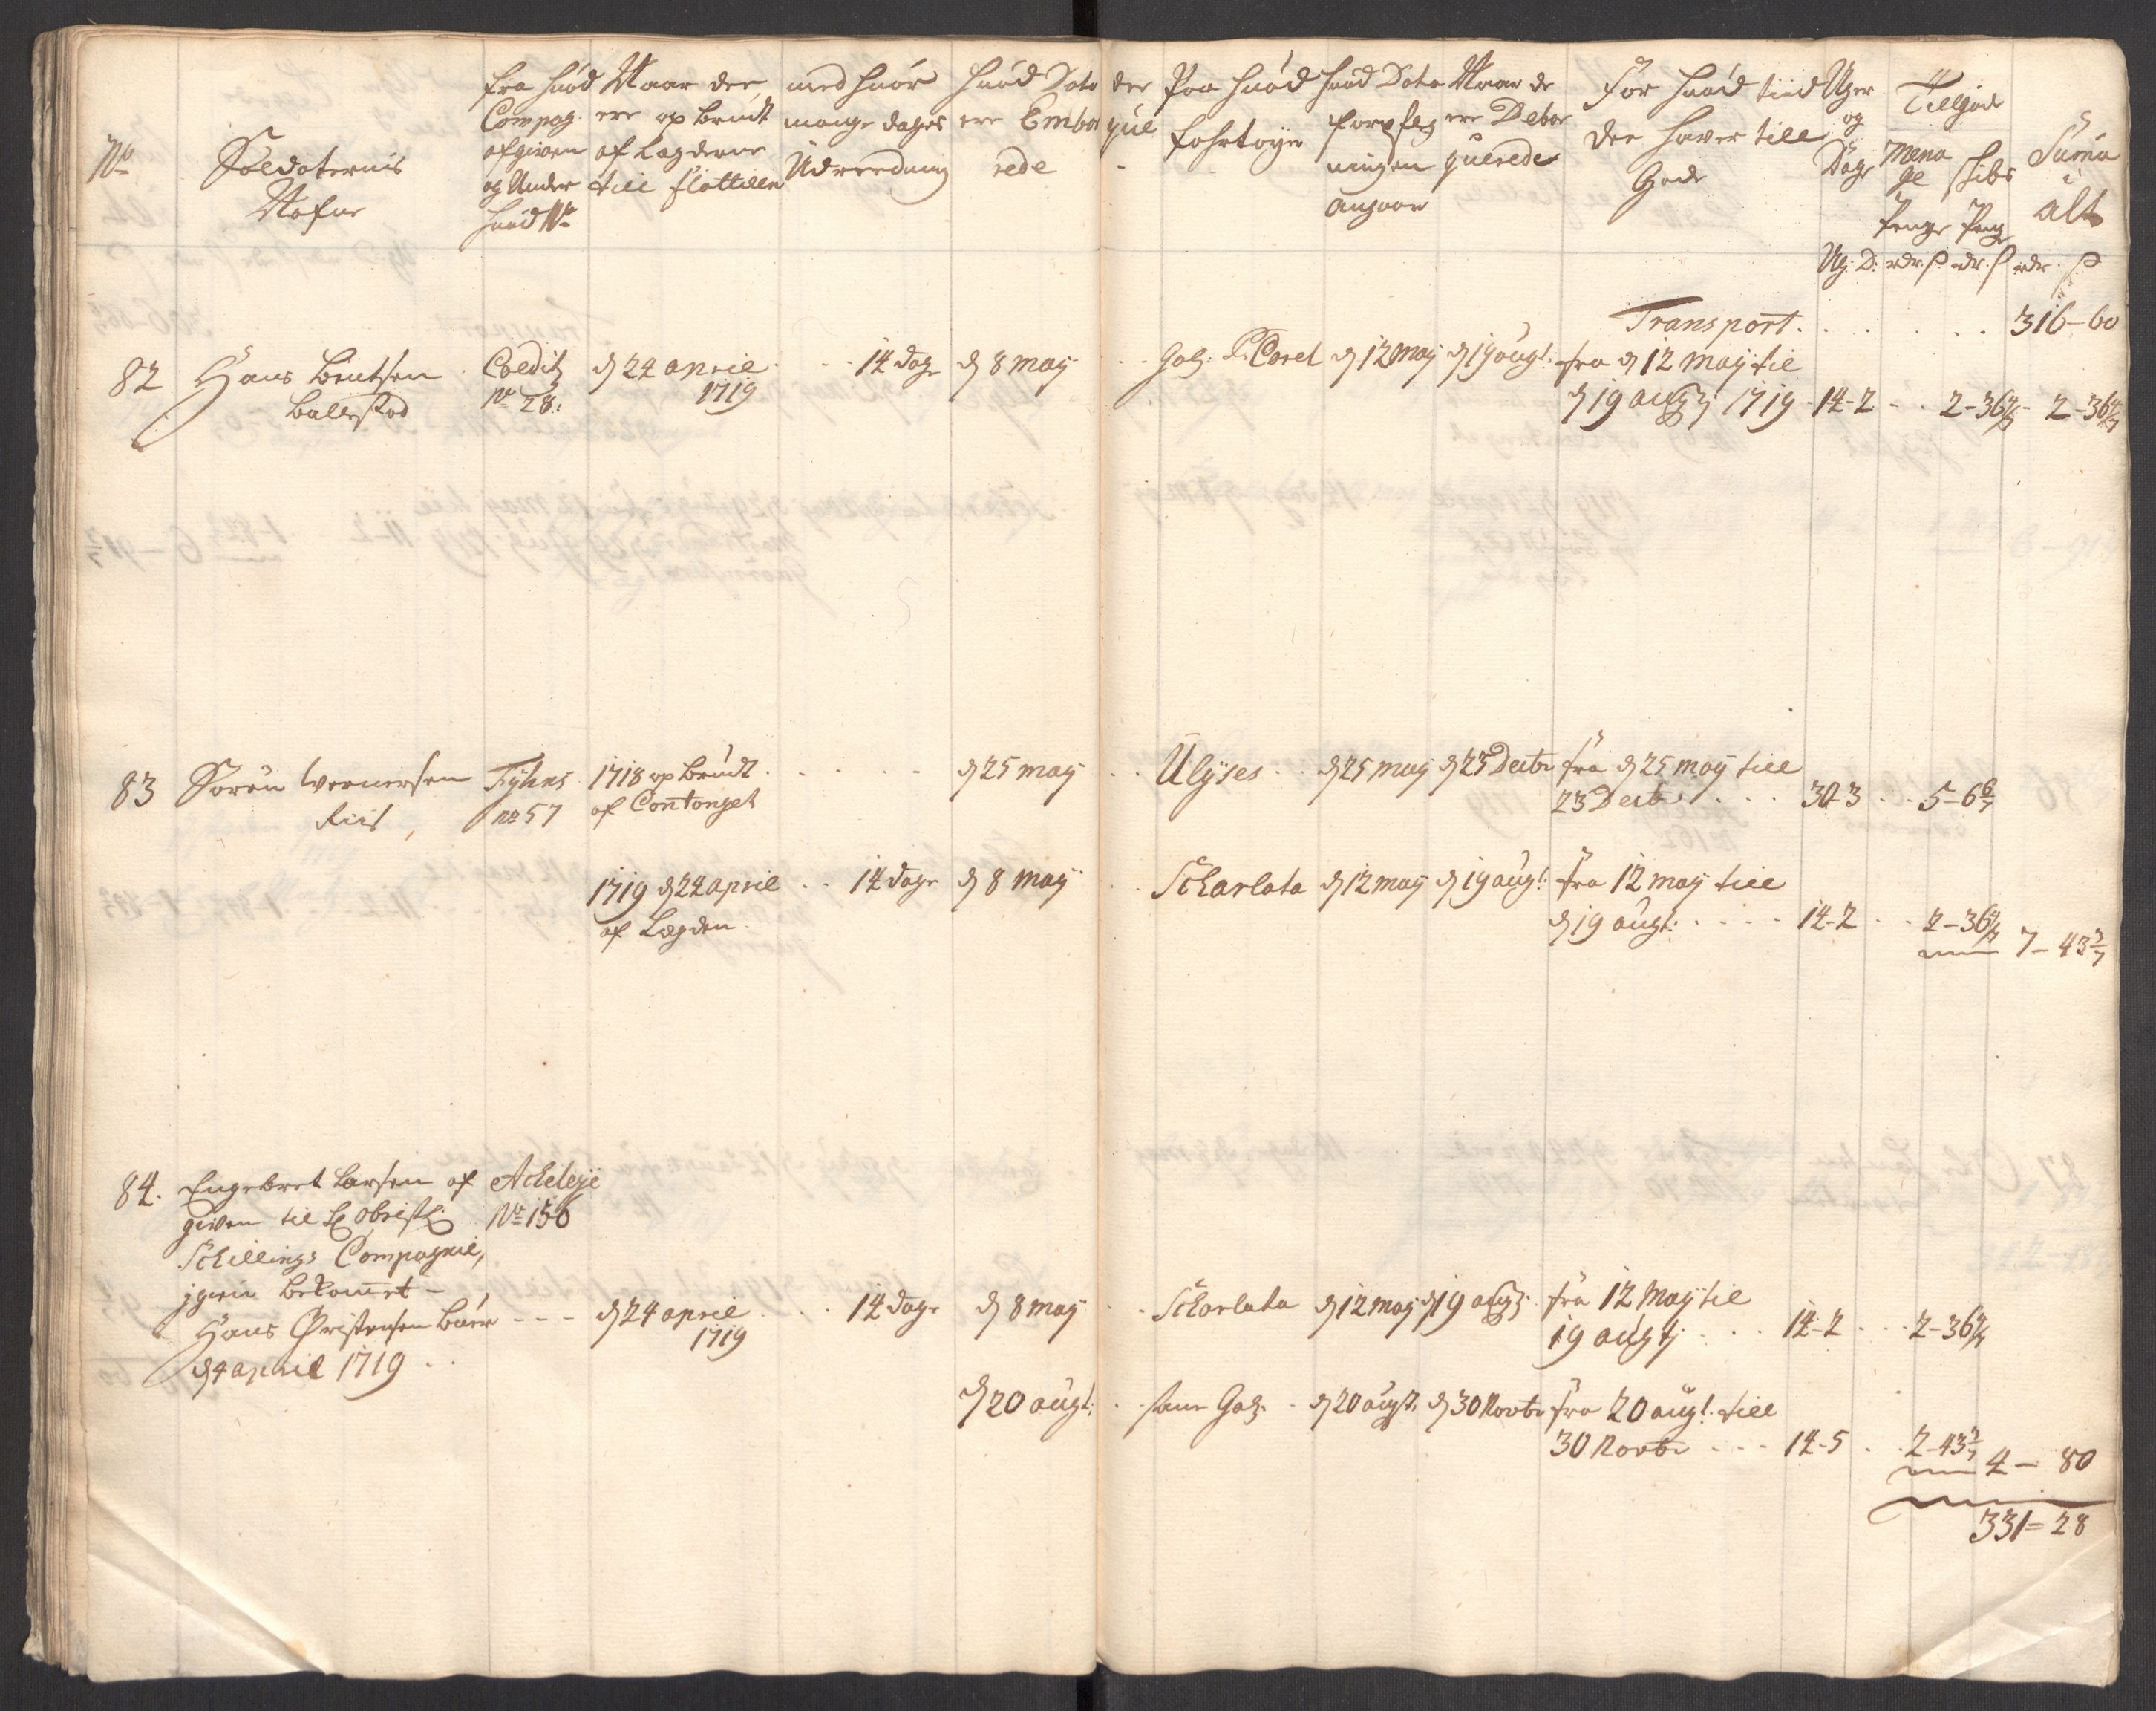 No
Soldaternis
Nafne
fra huad
Compag:
afgiven
og Under
huad No
Naar der
ere op brudt
af Lagderne
till flottillen
med huor
mange dages
Udreedning
huad Dato der
ere Embarque
rede
Paa huad
fahrtøyer
huad Dato
forpfleg
ningen
angaar
Naar de
ere Debar
querede
For huad tiid
der haver till
Gode
Uger
og
Dage
Tillgode
Mena
ge
Penge
skibs
Penge
Suma
i
alt
Ug: D: rdr. ß rdr. ß rdr. ß
Transport . . . . . 316-60
82 Hans Bentsen
Ballestad
Coelditz
No 28:
d 24 april
1719
14 dage
d 8 may
Gal: Pr: Carel
d 12 may
d 19 augt:
fra d 12 may til
d 19 augtj 1719 - 14-2 - - 2-36 4/7 - 2-36 4/7
83 Sorën Wernersen
Riis,
Fyhns
no 57
1718 op brudt
af Contonget
d 25 may
Ulyses
d 25 may
d 23 Decbr
fra d 25 may till
23 Decbr . . . 30-3 . . 5-6 6/7
1719 d 24 april
af Lægden
14 dage
d 8 may
Scharlata
d 12 may
d 19 augt:
fra 12 may till
d 19 augt: . . . . 14-2 . . 2-36 4/7
7-43 3/7
84. Engebret Larsen af
given til Obristl:
Schillings Compagnie,
igien bekomet -
Hans Christensen Baar - - -
d 4 april 1719 . .
Acheleye
No 156
d 24 april
1719
14 dage
d 8 may
Scharlata
d 12 may
d 19 augtj
fra 12 may til
19 augtj . . . 14-2 . . . 2-36 4/7
d 20 augt:
samme Gal:
d 20 augst:
d 30 Novbr
fra 20 augt: till
30 Novbr - - - 14-5 . . 2-43 3/7
4 - 80
331=28